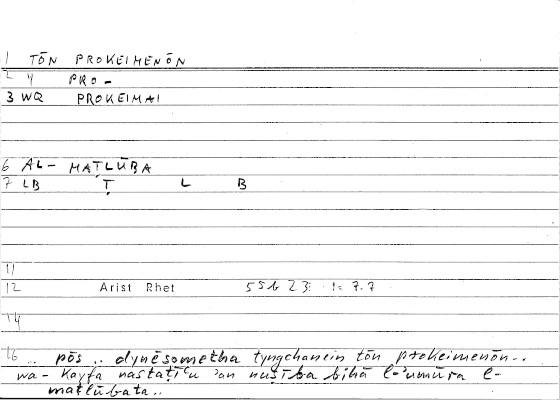 1 TŌN PROKEIMENŌN
2 Y PRO-
3 WQ PROKEIMAI
6 AL- MAṬLŪBA
7 LB Ṭ L B
11
12 Arist Rhet 55b 23
14
16 .. pōs .. dynēsometha tyngchanein tōn prokeimenōn..
wa- kayfa nastaṭīʿu ʾan nuṣība bihā l-ʾumūra l-
maṭlūbata..